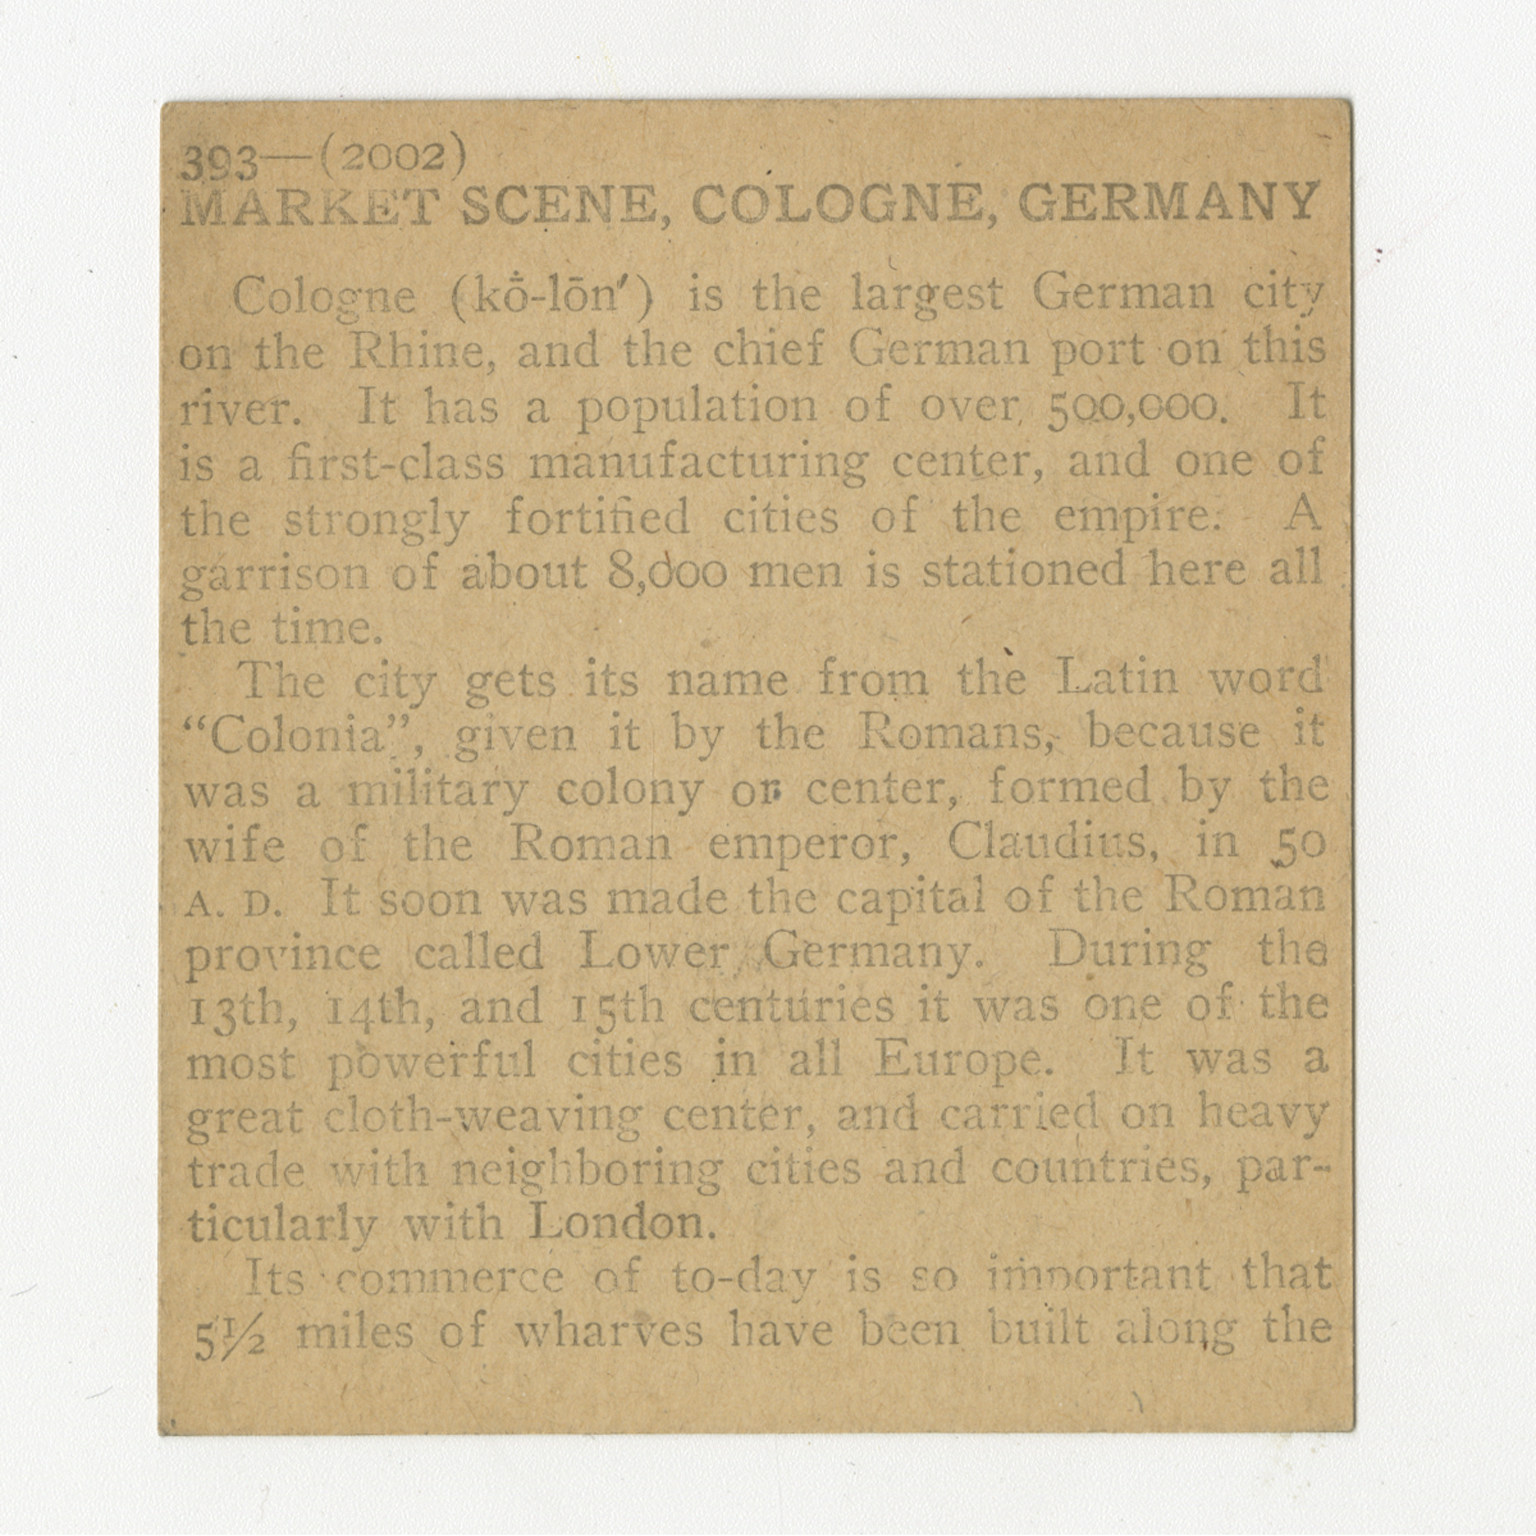 393—(2002)
MARKET SCENE, COLOGNE, GERMANY
Cologne (kṓ-lōn′) is the largest German city
on the Rhine, and the chief German port on this
river. It has a population of over 500,000. It
is a first-class manufacturing center, and one of
the strongly fortified cities of the empire. A
garrison of about 8,000 men is stationed here all
the time.
The city gets its name from the Latin word
“Colonia”, given it by the Romans, because it
was a military colony or center, formed by the
wife of the Roman emperor, Claudius, in 50
A. D. It soon was made the capital of the Roman
province called Lower Germany. During the
13th, 14th, and 15th centuries it was one of the
most powerful cities in all Europe. It was a
great cloth-weaving center, and carried on heavy
trade with neighboring cities and countries, par-
ticularly with London.
Its commerce of to-day is so important that
5½ miles of wharves have been built along the